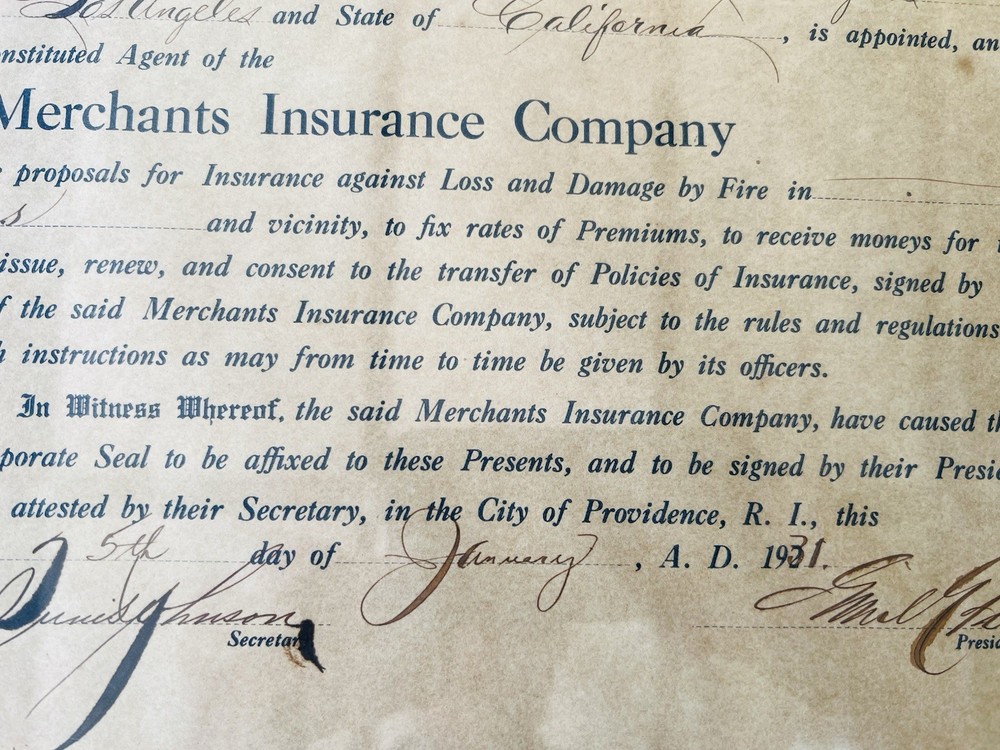 Los Angeles and State of California, is appointed, an
nstituted Agent of the
Merchants Insurance Company
proposals for Insurance against Loss and Damage by Fire in
s and vicinity, to fix rates of Premiums, to receive moneys for
issue, renew, and consent to the transfer of Policies of Insurance, signed by
f the said Merchants Insurance Company, subject to the rules and regulations
h instructions as may from time to time be given by its officers.
In Witness Whereof, the said Merchants Insurance Company, have caused th
porate Seal to be affixed to these Presents, and to be signed by their Presid
attested by their Secretary, in the City of Providence, R. I., this
5th day of January, A. D. 1931.
Johnson
Secretar
Presid